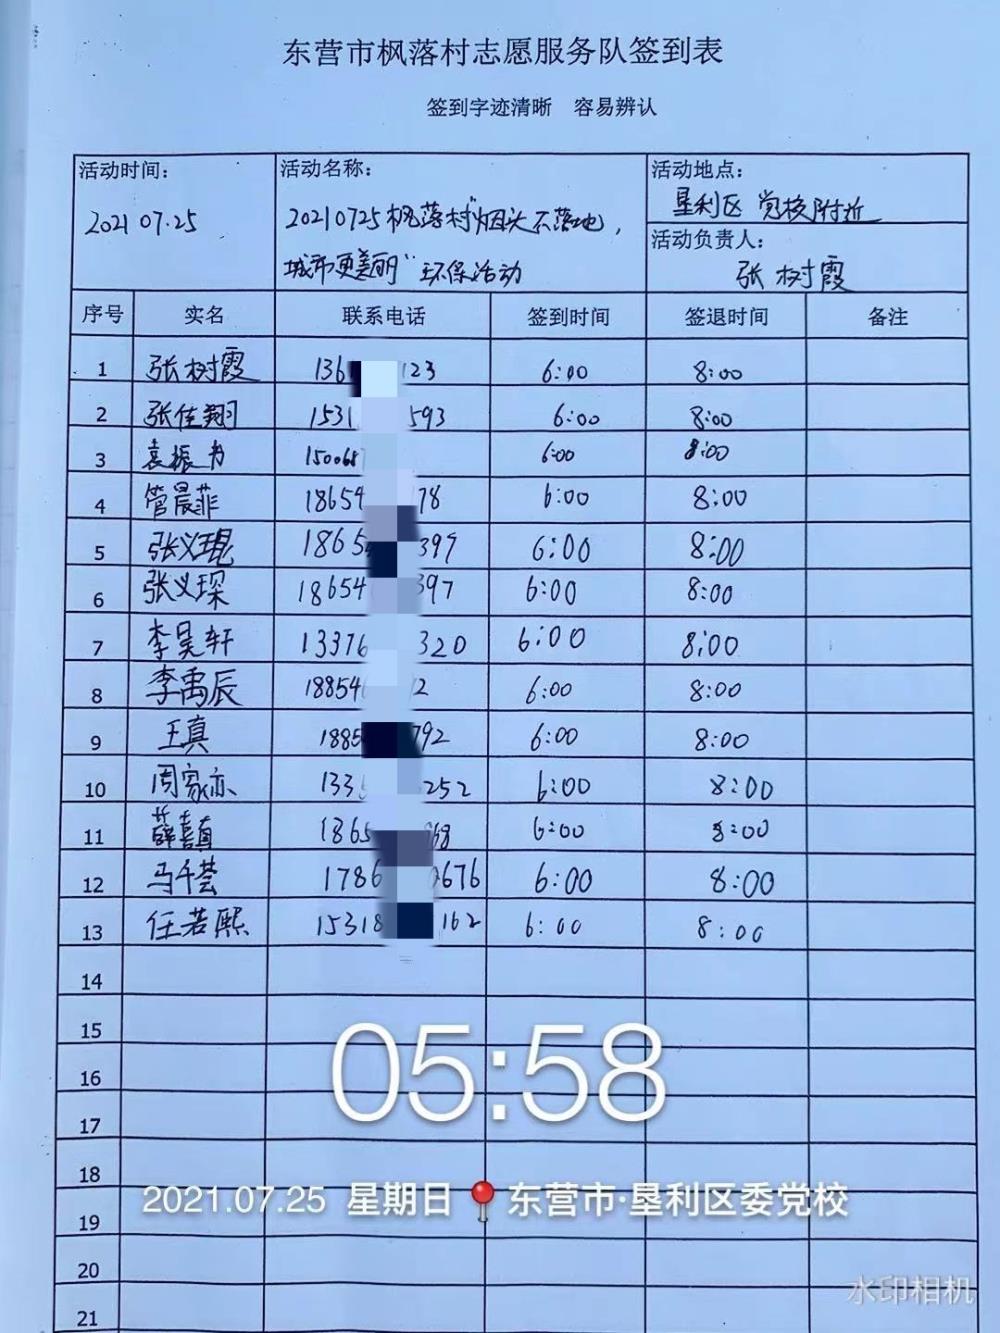 东营市枫落村志愿服务队签到表
签到字迹清晰 容易辨认
活动时间: 活动名称: 活动地点:
2021 07.25 20210725枫落村"烟头不落地, 垦利区 党校附近
城市更美丽"环保活动 活动负责人:
张树霞
序号 实名 联系电话 签到时间 签退时间 备注
1 张树霞 136 123 6:00 8:00
2 张佳翔 1531 593 6:00 8:00
3 袁振 15006 6:00 8:00
4 管晨菲 18654 178 6:00 8:00
5 张义琨 1865 397 6:00 8:00
6 张义琛 18654 397 6:00 8:00
7 李昊轩 13376 320 6:00 8:00
8 李禹辰 18854 2 6:00 8:00
9 王真 1885 792 6:00 8:00
10 周家亦 133 252 6:00 8:00
11 薛嘉真 1865 68 6:00 8:00
12 马千荟 1786 0676 6:00 8:00
13 任若熙 15318 162 6:00 8:00
14
15
05:58
16
17
18
2021.07.25 星期日 东营市·垦利区委党校
19
20
水印相机
21